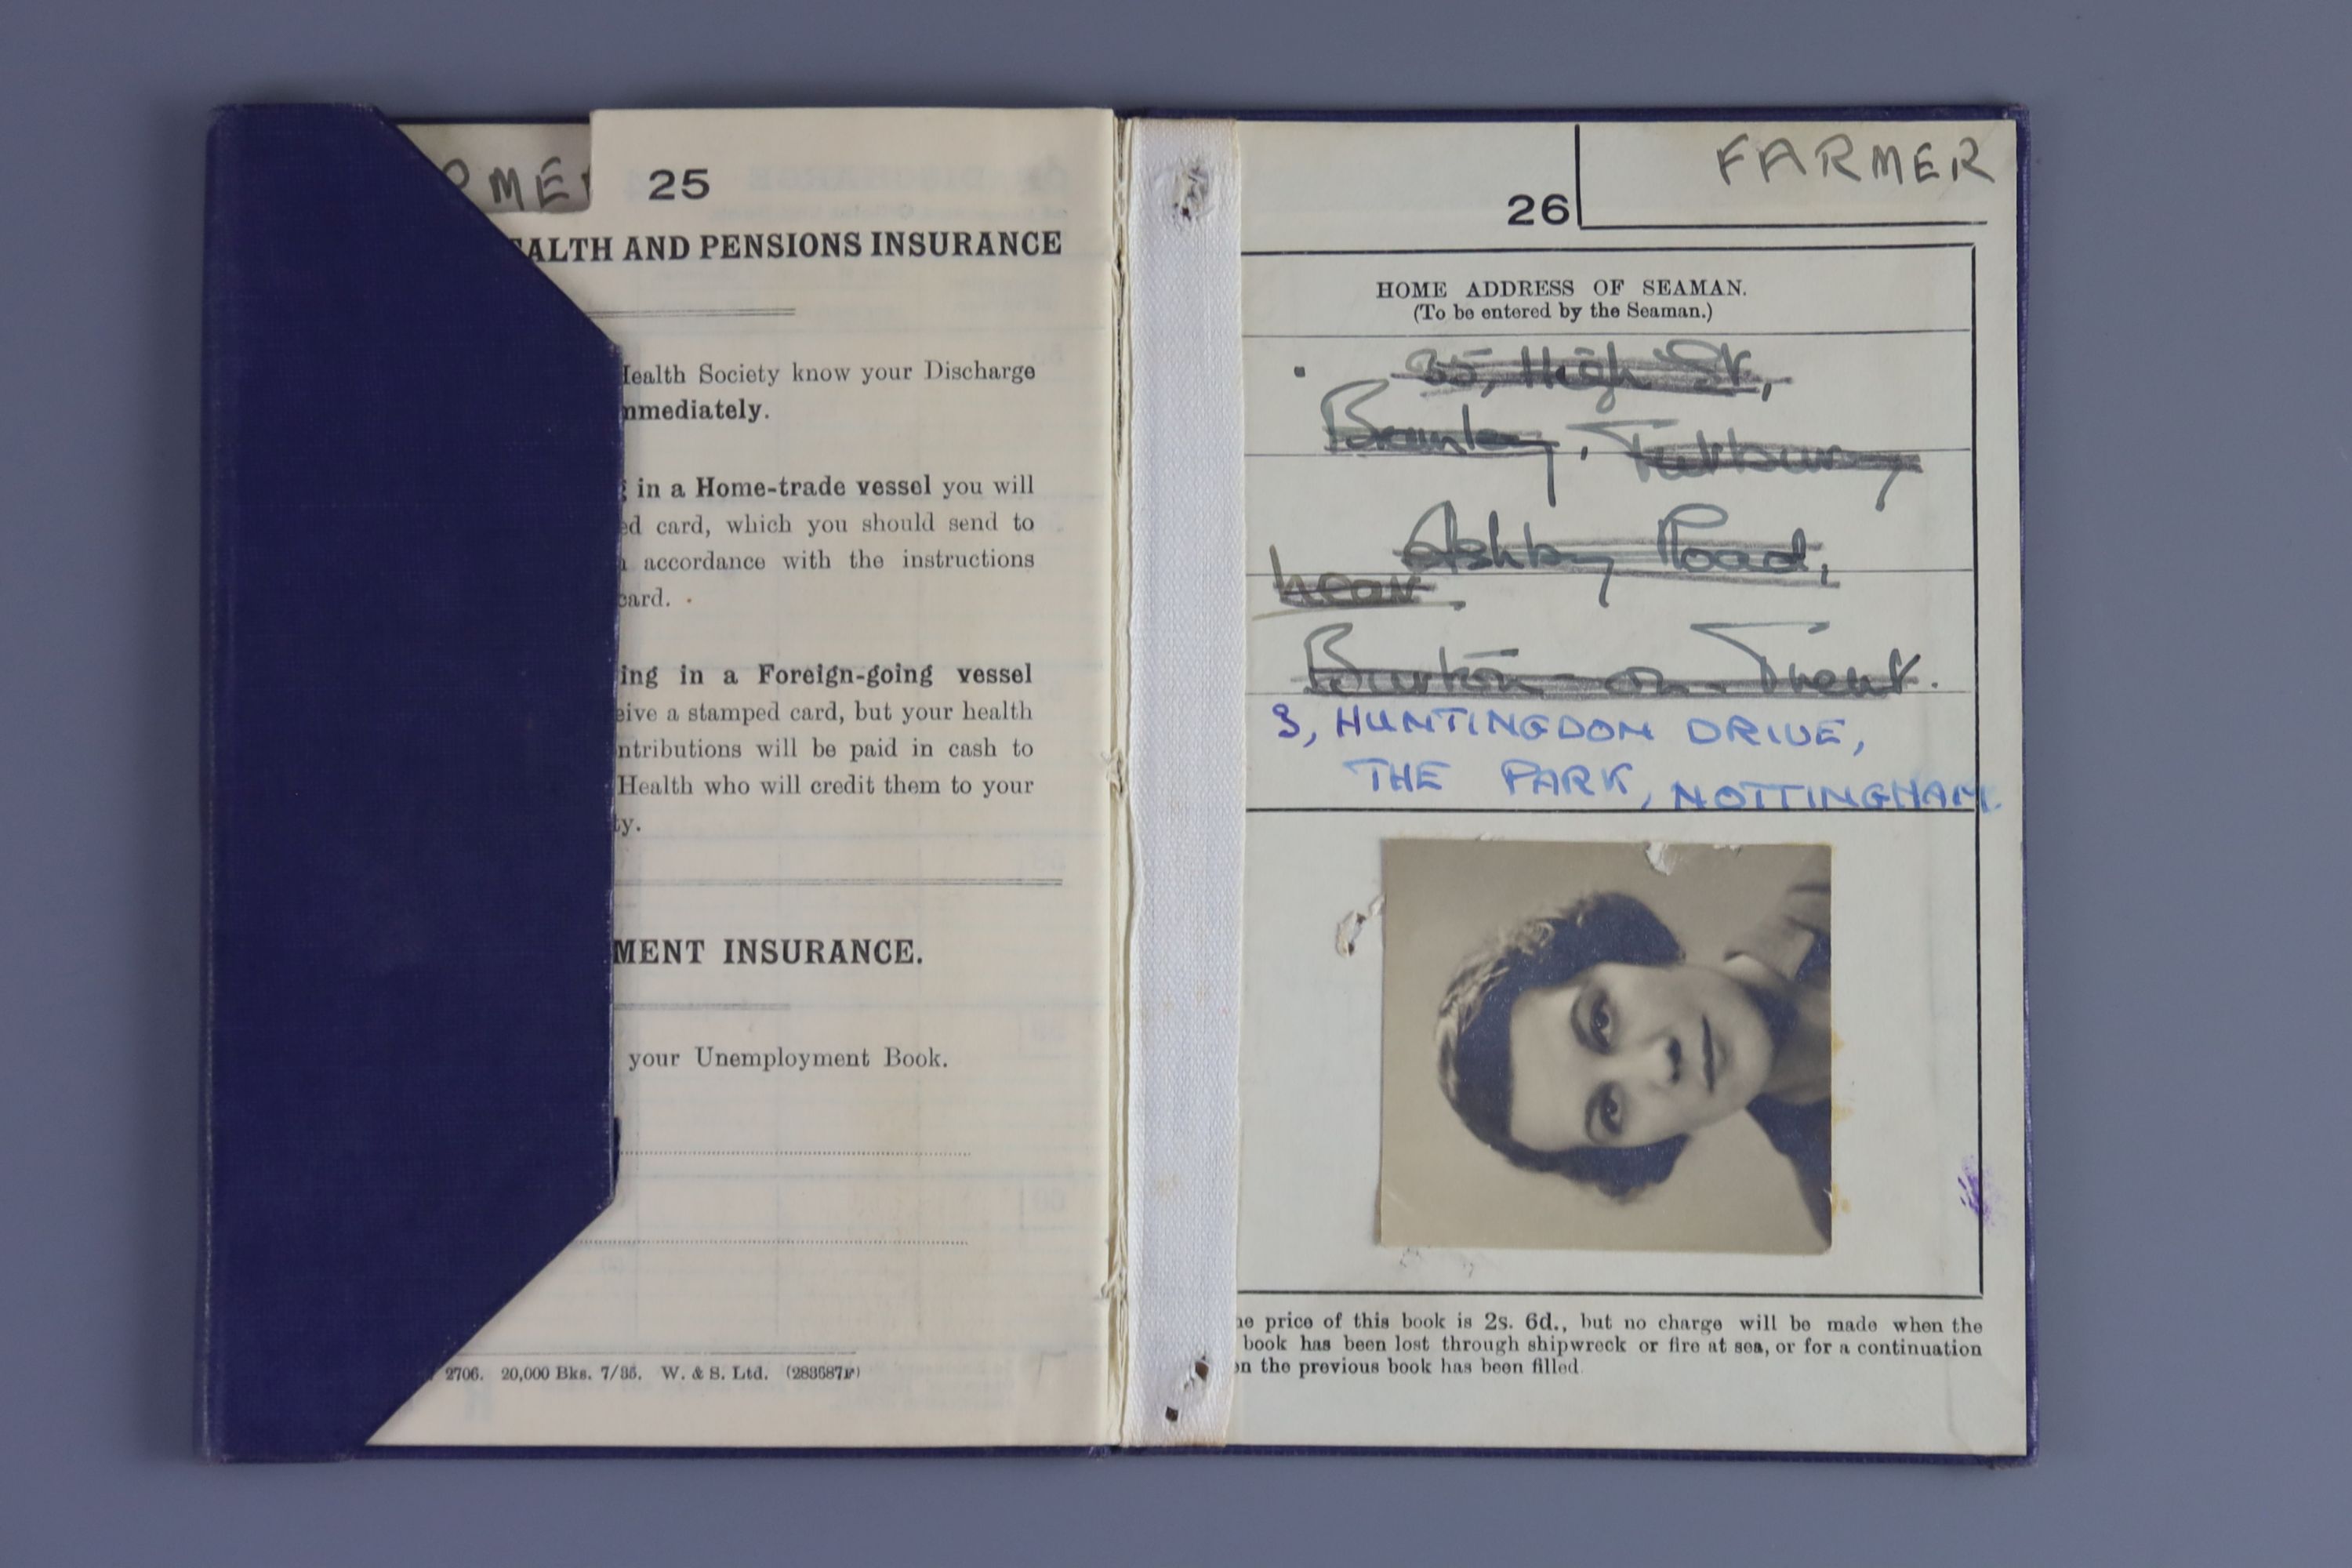 RMER
25
EALTH AND PENSIONS INSURANCE
Health Society know your Discharge
mmediately.
in a Home-trade vessel you will
ed card, which you should send to
accordance with the instructions
card.
ing in a Foreign-going vessel
eive a stamped card, but your health
ntributions will be paid in cash to
Health who will credit them to your
ty.
MENT INSURANCE.
your Unemployment Book.
2706. 20,000 Bks. 7/35. W. & S. Ltd. (283587F)
26
FARMER
HOME ADDRESS OF SEAMAN.
(To be entered by the Seaman.)
35, High St,
Tutbury
Ashby Road,
near
Burton-on-Trent.
3, HUNTINGDON DRIVE,
THE PARK, NOTTINGHAM.
he price of this book is 2s. 6d., but no charge will be made when the
book has been lost through shipwreck or fire at sea, or for a continuation
n the previous book has been filled.